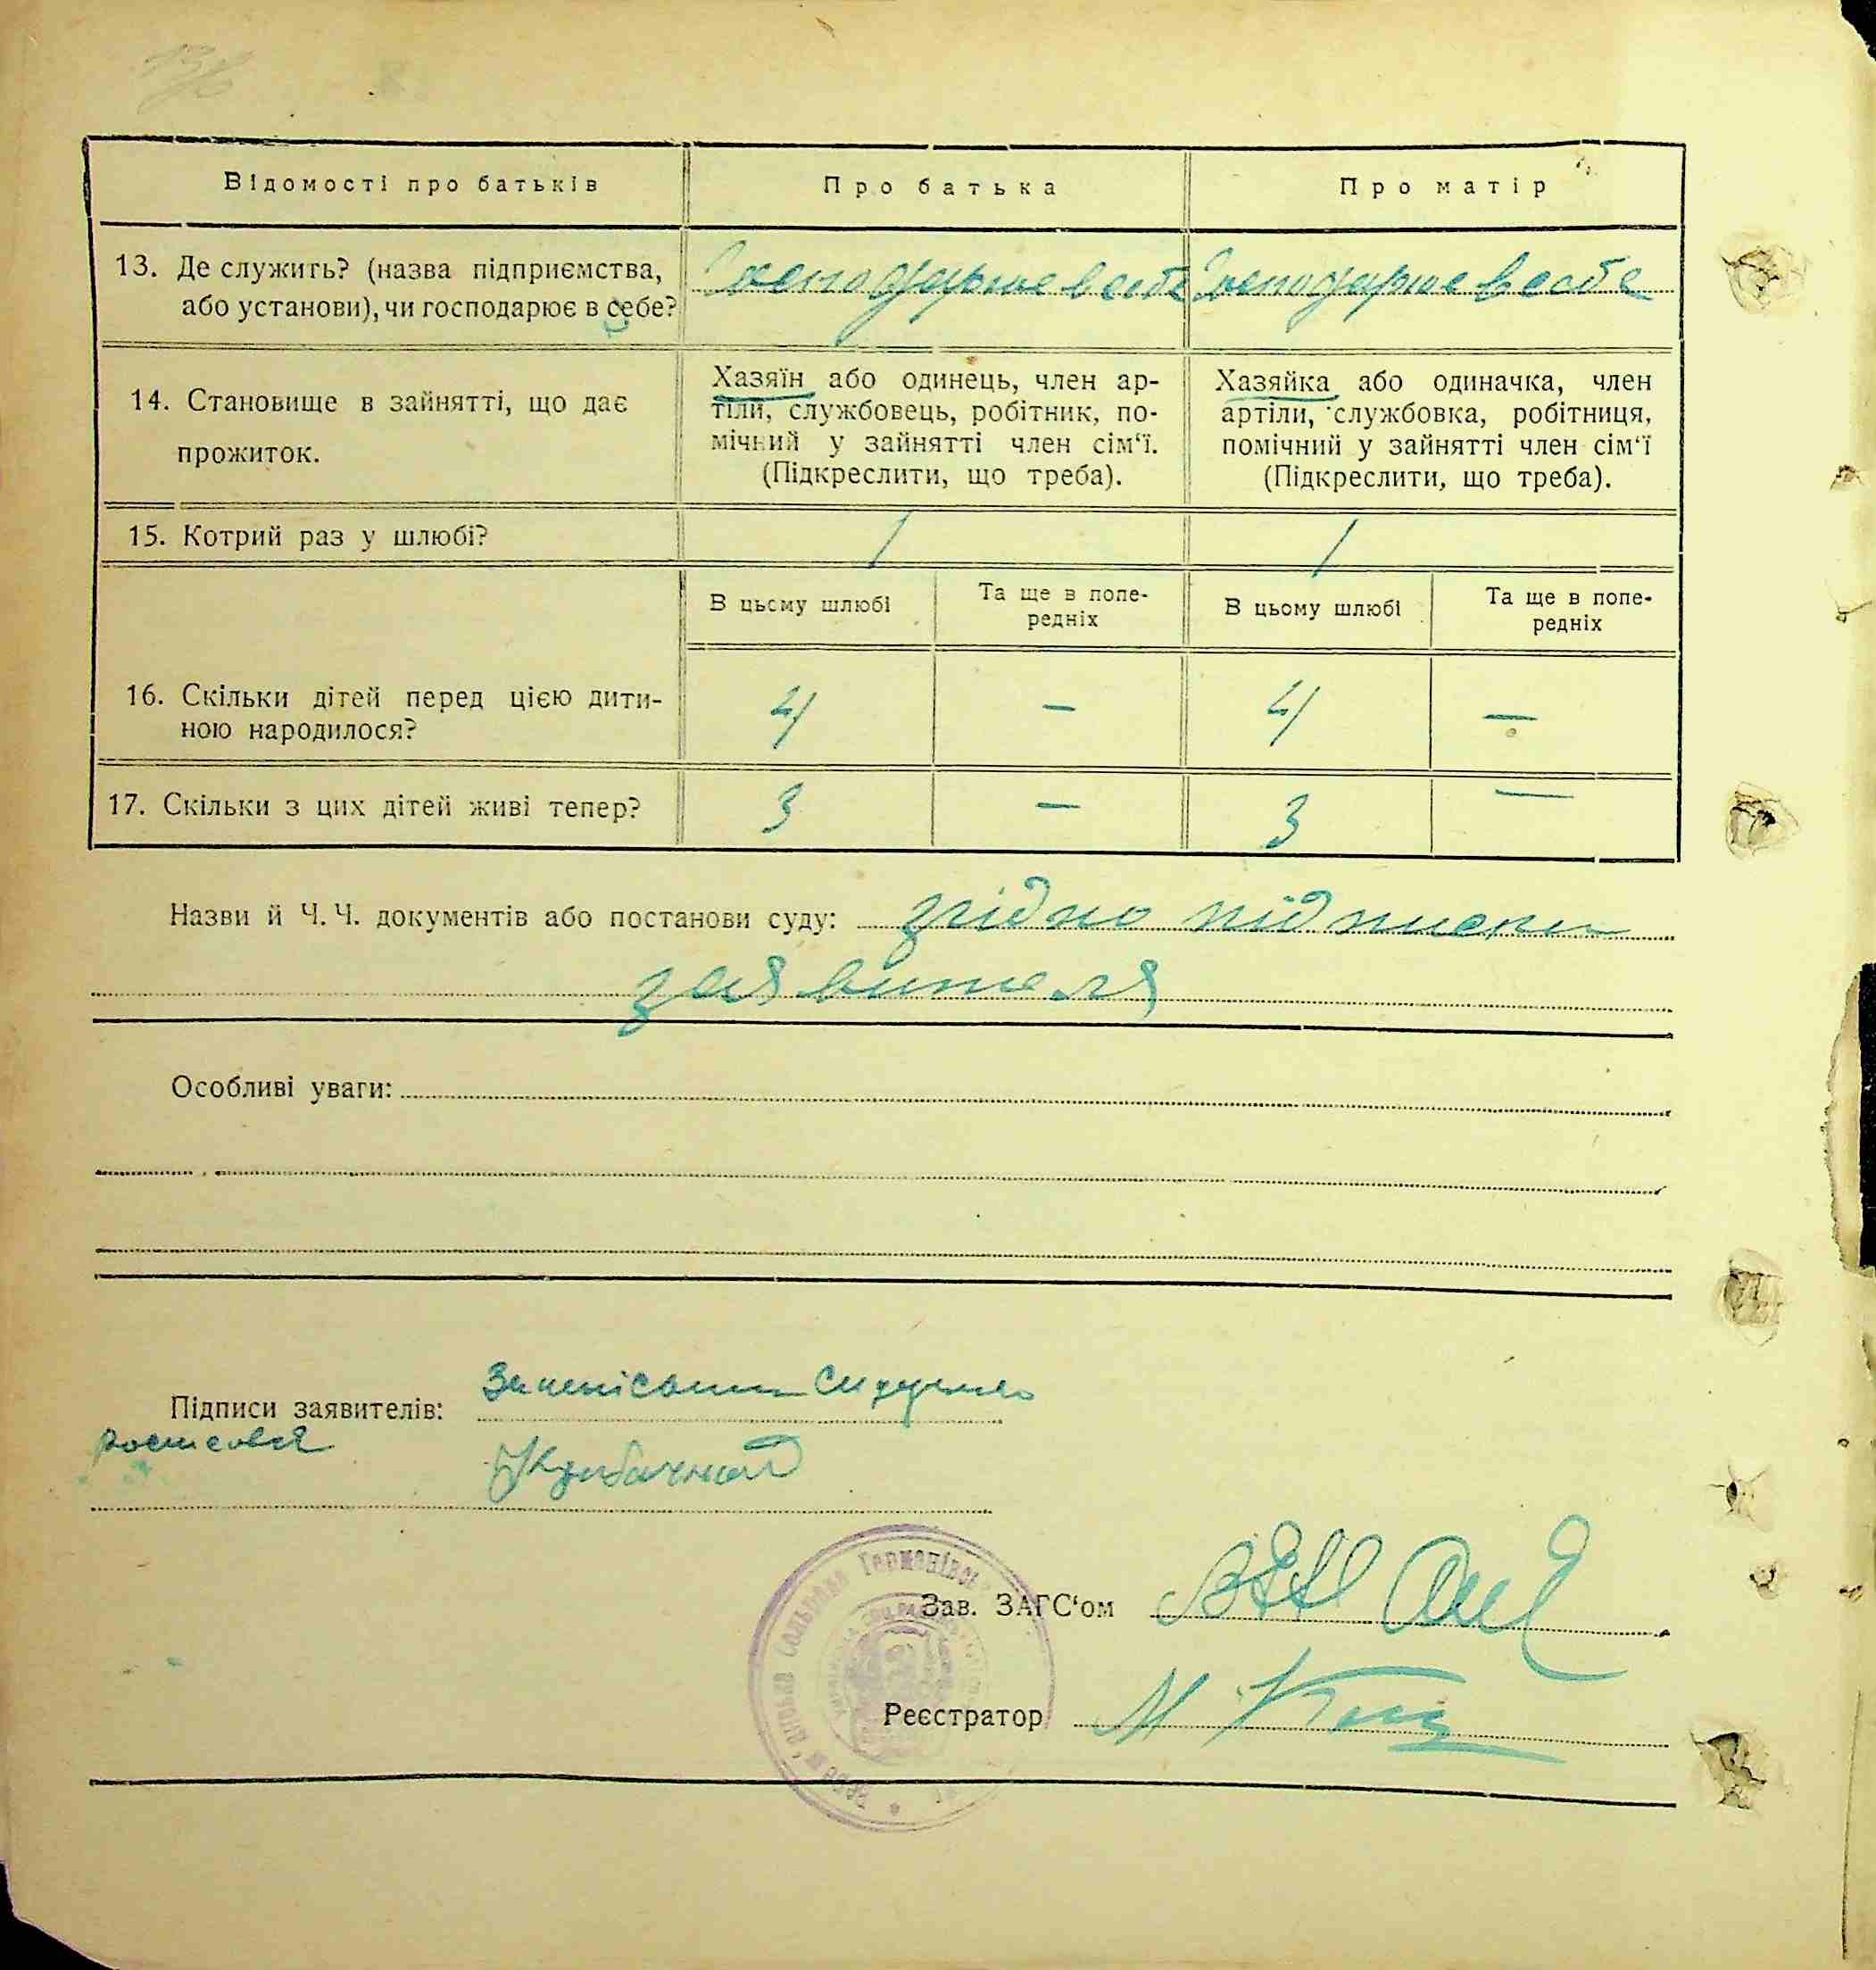 136
Відомості про батьків
Про батька
Про матір
13. Де служить? (назва підприємства,
або установи), чи господарює в себе?
господарює в себе
господарює в себе
14. Становище в зайнятті, що дає
прожиток.
Хазяїн або одинець, член ар-
тіли, службовець, робітник, по-
мічний у зайнятті член сім‘ї.
(Підкреслити, що треба).
Хазяйка або одиначка, член
артіли, службовка, робітниця,
помічний у зайнятті член сім‘ї
(Підкреслити, що треба).
15. Котрий раз у шлюбі?
1
1
В цьому шлюбі
Та ще в попе-
редніх
В цьому шлюбі
Та ще в попе-
редніх
16. Скільки дітей перед цією дити-
ною народилося?
4
—
4
—
17. Скільки з цих дітей живі тепер?
3
—
3
—
Назви й Ч. Ч. документів або постанови суду: згідно підписки
заявителя
Особливі уваги:
Підписи заявителів:
Зав. ЗАГС‘ом
Реєстратор